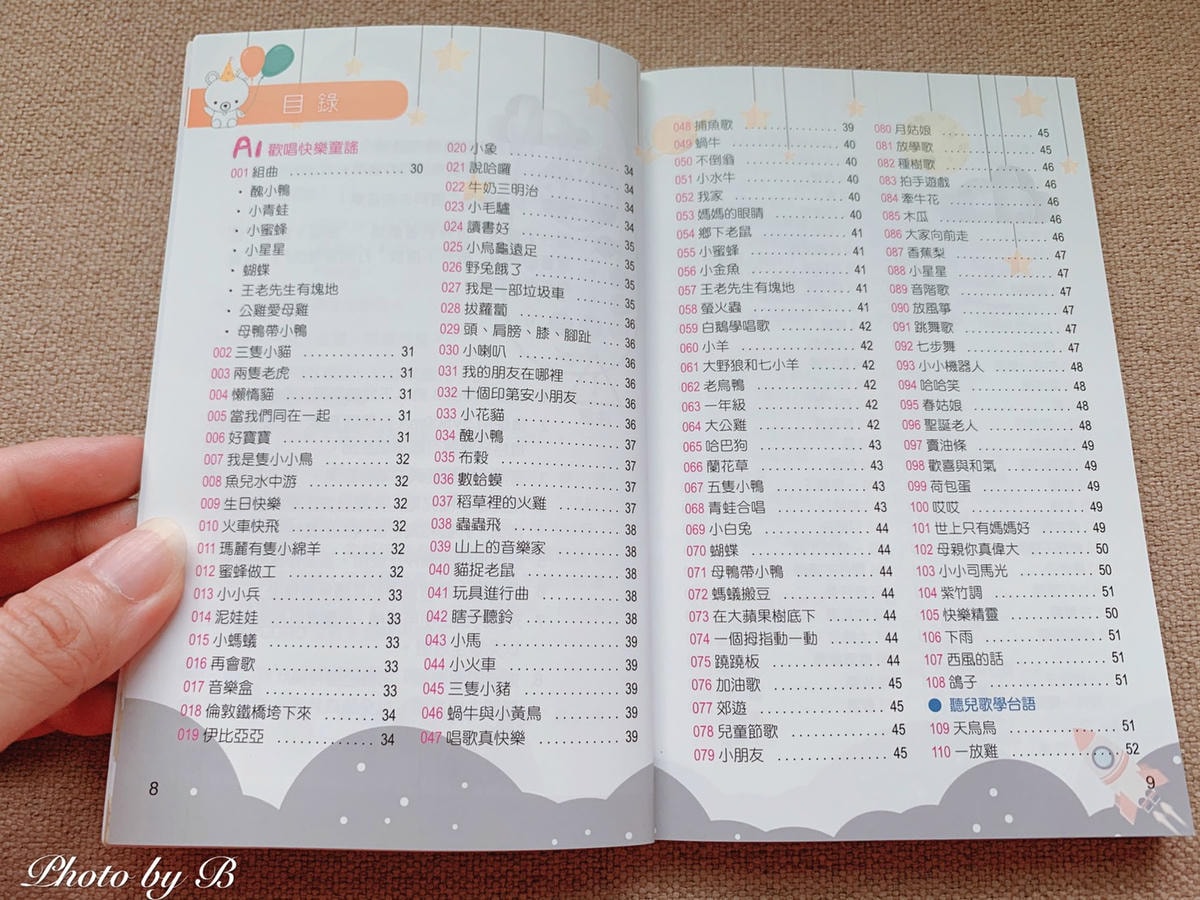 目錄
A1 歡唱快樂童謠
001 組曲 ………… 30
・醜小鴨
・小青蛙
・小蜜蜂
・小星星
・蝴蝶
・王老先生有塊地
・公雞愛母雞
・母鴨帶小鴨
002 三隻小貓 ………… 31
003 兩隻老虎 ………… 31
004 懶惰貓 ………… 31
005 當我們同在一起 ………… 31
006 好寶寶 ………… 31
007 我是隻小小鳥 ………… 32
008 魚兒水中游 ………… 32
009 生日快樂 ………… 32
010 火車快飛 ………… 32
011 瑪麗有隻小綿羊 ………… 32
012 蜜蜂做工 ………… 32
013 小小兵 ………… 33
014 泥娃娃 ………… 33
015 小螞蟻 ………… 33
016 再會歌 ………… 33
017 音樂盒 ………… 33
018 倫敦鐵橋垮下來 ………… 34
019 伊比亞亞 ………… 34
020 小象 ………… 34
021 說哈囉 ………… 34
022 牛奶三明治 ………… 34
023 小毛驢 ………… 34
024 讀書好 ………… 35
025 小烏龜遠足 ………… 35
026 野兔餓了 ………… 35
027 我是一部垃圾車 ………… 35
028 拔蘿蔔 ………… 36
029 頭、肩膀、膝、腳趾 ………… 36
030 小喇叭 ………… 36
031 我的朋友在哪裡 ………… 36
032 十個印第安小朋友 ………… 36
033 小花貓 ………… 37
034 醜小鴨 ………… 37
035 布穀 ………… 37
036 數蛤蟆 ………… 37
037 稻草裡的火雞 ………… 37
038 蟲蟲飛 ………… 38
039 山上的音樂家 ………… 38
040 貓捉老鼠 ………… 38
041 玩具進行曲 ………… 38
042 瞎子聽鈴 ………… 38
043 小馬 ………… 39
044 小火車 ………… 39
045 三隻小豬 ………… 39
046 蝸牛與小黃鳥 ………… 39
047 唱歌真快樂 ………… 39
8
048 捕魚歌 ………… 39
049 蝸牛 ………… 40
050 不倒翁 ………… 40
051 小水牛 ………… 40
052 我家 ………… 40
053 媽媽的眼睛 ………… 40
054 鄉下老鼠 ………… 41
055 小蜜蜂 ………… 41
056 小金魚 ………… 41
057 王老先生有塊地 ………… 41
058 螢火蟲 ………… 41
059 白鵝學唱歌 ………… 42
060 小羊 ………… 42
061 大野狼和七小羊 ………… 42
062 老烏鴨 ………… 42
063 一年級 ………… 42
064 大公雞 ………… 42
065 哈巴狗 ………… 43
066 蘭花草 ………… 43
067 五隻小鴨 ………… 43
068 青蛙合唱 ………… 43
069 小白兔 ………… 44
070 蝴蝶 ………… 44
071 母鴨帶小鴨 ………… 44
072 螞蟻搬豆 ………… 44
073 在大蘋果樹底下 ………… 44
074 一個拇指動一動 ………… 44
075 蹺蹺板 ………… 44
076 加油歌 ………… 45
077 郊遊 ………… 45
078 兒童節歌 ………… 45
079 小朋友 ………… 45
080 月姑娘 ………… 45
081 放學歌 ………… 45
082 種樹歌 ………… 46
083 拍手遊戲 ………… 46
084 牽牛花 ………… 46
085 木瓜 ………… 46
086 大家向前走 ………… 46
087 香蕉梨 ………… 47
088 小星星 ………… 47
089 音階歌 ………… 47
090 放風箏 ………… 47
091 跳舞歌 ………… 47
092 七步舞 ………… 47
093 小小機器人 ………… 48
094 哈哈笑 ………… 48
095 春姑娘 ………… 48
096 聖誕老人 ………… 48
097 賣油條 ………… 49
098 歡喜與和氣 ………… 49
099 荷包蛋 ………… 49
100 哎哎 ………… 49
101 世上只有媽媽好 ………… 49
102 母親你真偉大 ………… 50
103 小小司馬光 ………… 50
104 紫竹調 ………… 51
105 快樂精靈 ………… 50
106 下雨 ………… 51
107 西風的話 ………… 51
108 鴿子 ………… 51
● 聽兒歌學台語
109 天烏烏 ………… 51
110 一放雞 ………… 52
9
Photo by B